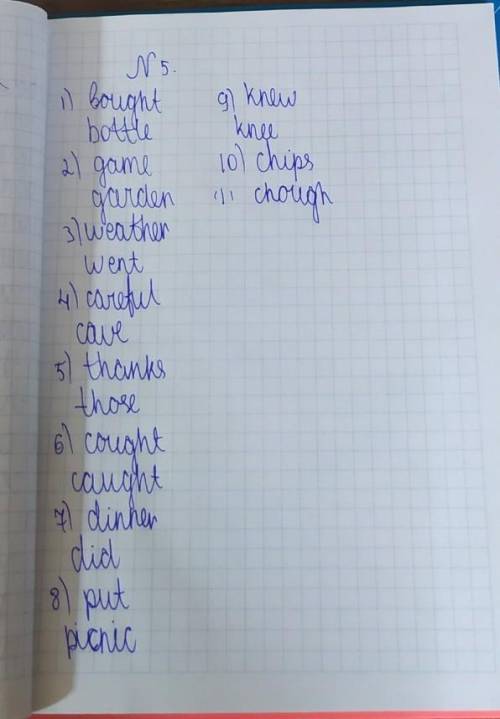 N 5.
1) bought
bottle
2) game
garden
3) weather
went
4) careful
cave
5) thanks
those
6) cought
caught
7) dinner
did
8) put
picnic
9) knew
knee
10) chips
11) chough